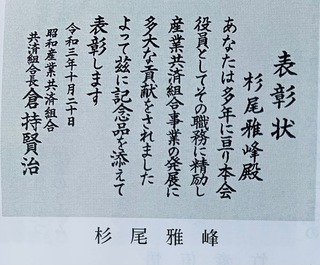 表彰状
杉尾雅峰殿
あなたは多年に亘り本会
役員としてその職務に精励し
産業共済組合事業の発展に
多大な貢献をされました
よって茲に記念品を添えて
表彰します
令和三年十月二十日
昭和産業共済組合
共済組合長倉持賢治
杉尾雅峰